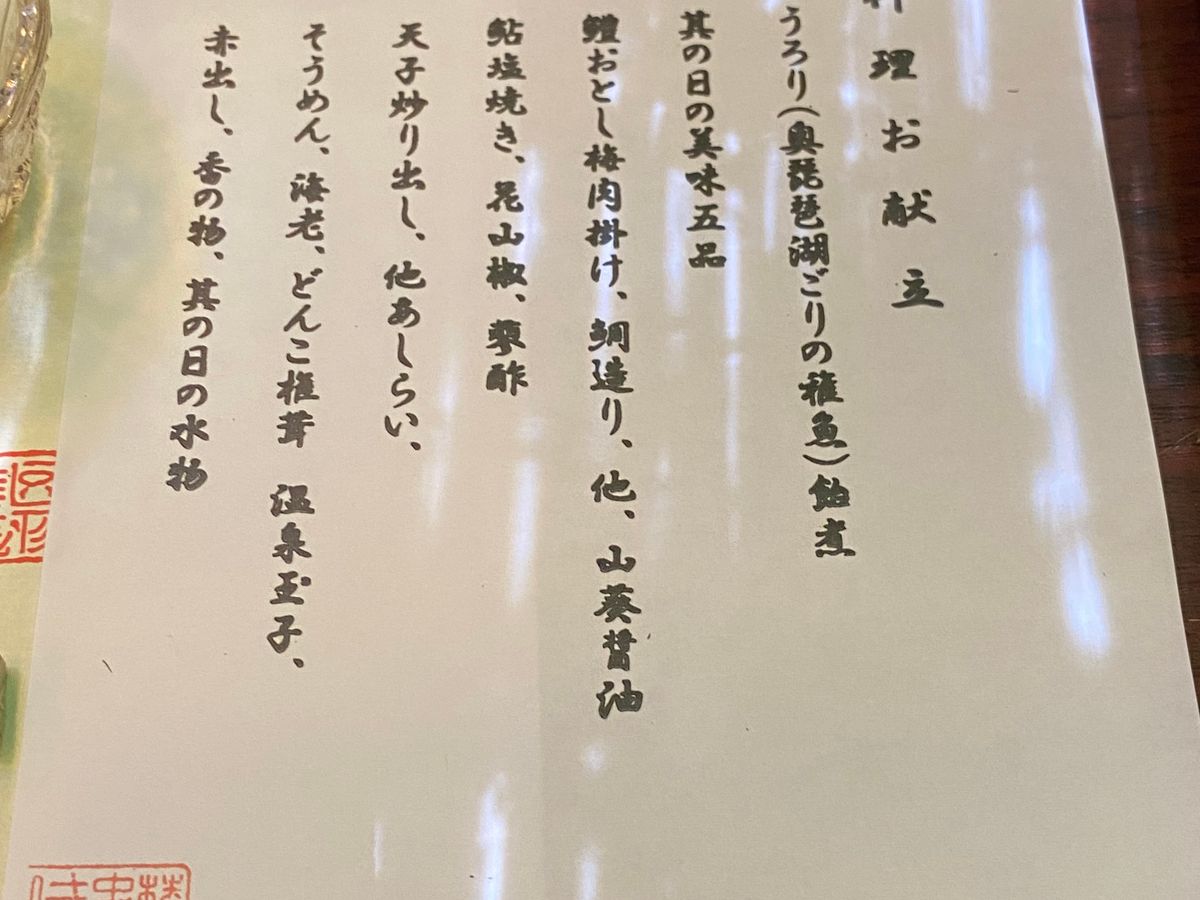 理お献立
うろり(奥琵琶湖ごりの稚魚)飴煮
其の日の美味五品
鱧おとし梅肉掛け、鯛造り、他、山葵醤油
鮎塩焼き、花山椒、蓼酢
天子炒り出し、他あしらい、
そうめん、海老、どんこ椎茸 温泉玉子、
赤出し、香の物、其の日の水物